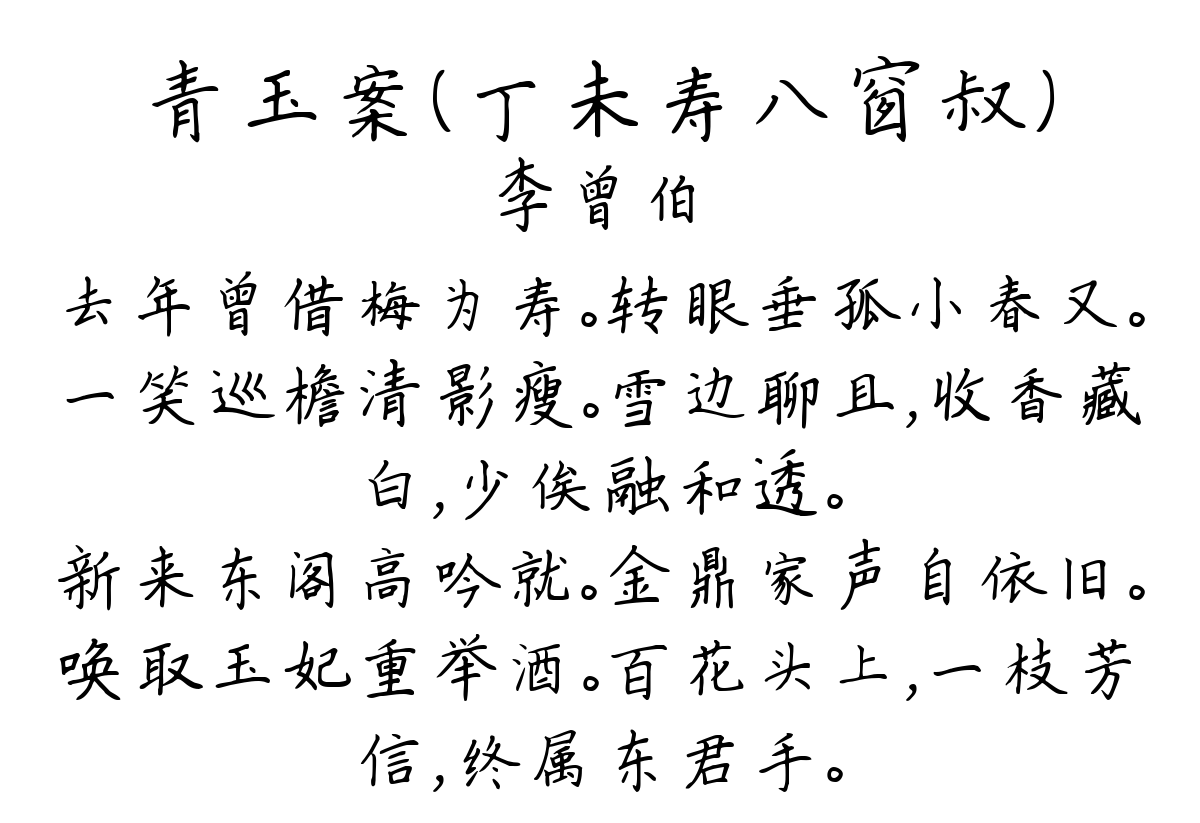 青玉案(丁未寿八窗叔)
李曾伯
去年曾借梅为寿。转眼垂孤小春又。
一笑巡檐清影瘦。雪边聊且,收香藏
白,少俟融和透。
新来东阁高吟就。金鼎家声自依旧。
唤取玉妃重举酒。百花头上,一枝芳
信,终属东君手。